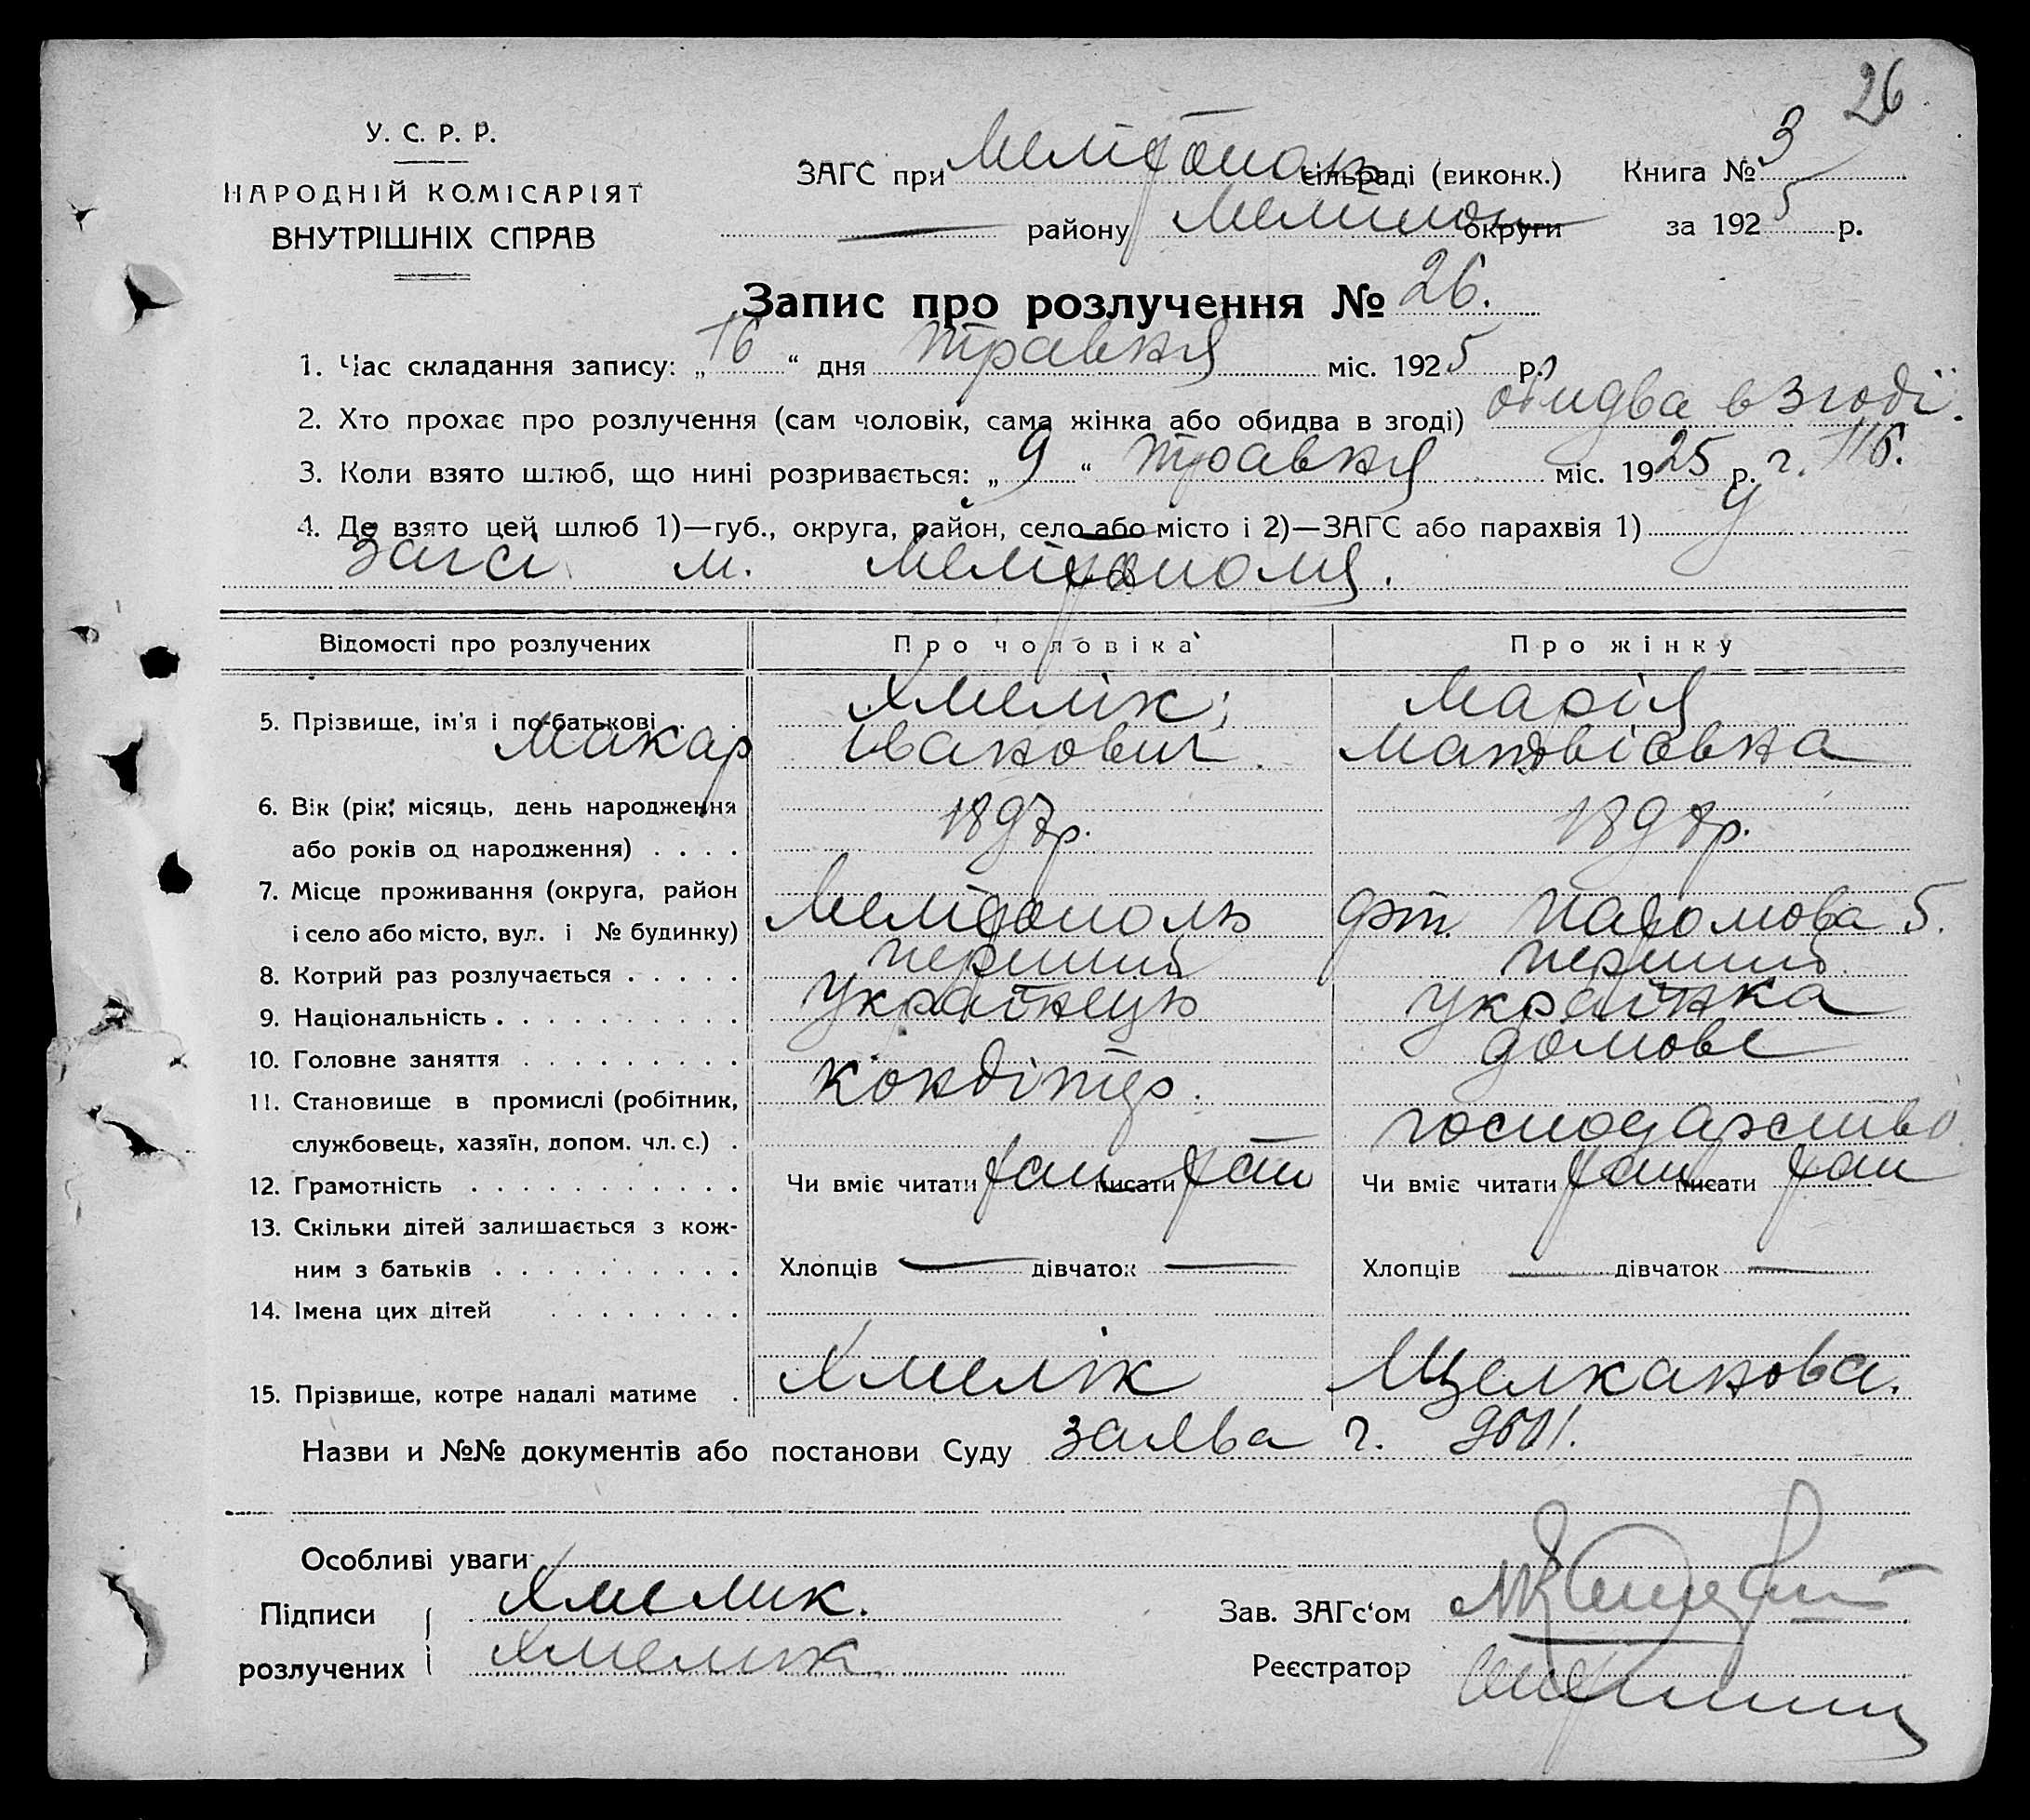 26
У. С. Р. Р.
НАРОДНІЙ КОМІСАРІЯТ
ВНУТРІШНІХ СПРАВ
ЗАГС при Мелітопол. сільраді (виконк.) Книга № 3
— району Мелітоп. округи за 1925 р.
Запис про розлучення № 26.
1. Час складання запису: „16“ дня травня міс. 1925 р.
2. Хто прохає про розлучення (сам чоловік, сама жінка або обидва в згоді) обидва в згоді.
3. Коли взято шлюб, що нині розривається: „9“ травня міс. 1925 р. ч. 116.
4. Де взято цей шлюб 1)—губ., округа, район, село або місто і 2)—ЗАГС або парахвія 1) у
загсі м. Мелітополя.
Відомості про розлучених Про чоловіка Про жінку
5. Прізвище, ім'я і по-батькові Хмелік; Марія
Макар Іванович Матвіївна
6. Вік (рік, місяць, день народження 1897р. 1898р.
або років од народження) . . . .
7. Місце проживання (округа, район
і село або місто, вул. і № будинку) Мелітополь 5.
8. Котрий раз розлучається . . . . . перший перший
9. Національність . . . . . . . . . . українець українка
10. Головне заняття . . . . . . . . . кондітер. домове
11. Становище в промислі (робітник,
службовець, хазяїн, допом. чл. с.) . господарство
12. Грамотність . . . . . . . . . . . Чи вміє читати так писати так Чи вміє читати так писати так
13. Скільки дітей залишається з кож-
ним з батьків . . . . . . . . . . Хлопців — дівчаток — Хлопців — дівчаток —
14. Імена цих дітей . . . . . . . .
15. Прізвище, котре надалі матиме . Хмелік Щелканова.
Назви и №№ документів або постанови Суду заява ч.
Особливі уваги
Підписи Хмелик. Зав. ЗАГс'ом
розлучених Хмелик Реєстратор